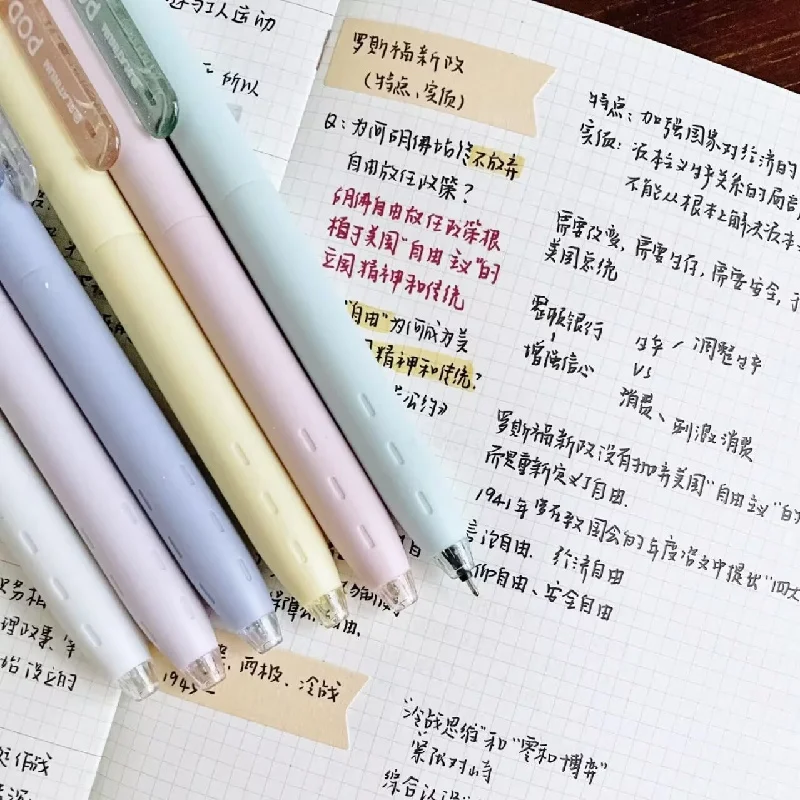 与工人运动
所以
罗斯福新政
(特点、实质)
Q:为何胡佛始终不放弃
自由放任政策?
胡佛自由放任政策根
植于美国"自由主义"的
立国精神和传统
"自由"为何成为美
精神和传统?
公约》
特点:加强国家对经济的
实质:资本主义生产关系的局部
不能从根本上解决资本主
需要改变,需要生存,需要安全,
美国总统
整顿银行
增强信心
生产/调整生产
VS
消费、刺激消费
罗斯福新政没有抛弃美国"自由主义"的
而是重新定义了自由.
1941年罗在致国会的年度咨文中提出"四大
言论自由、经济自由
仰自由、安全自由
自由.
两极、冷战
1945
"冷战思维"和"零和博弈"
紧张对峙
综合认识
理政策
始设立的
作战
PLATINUM